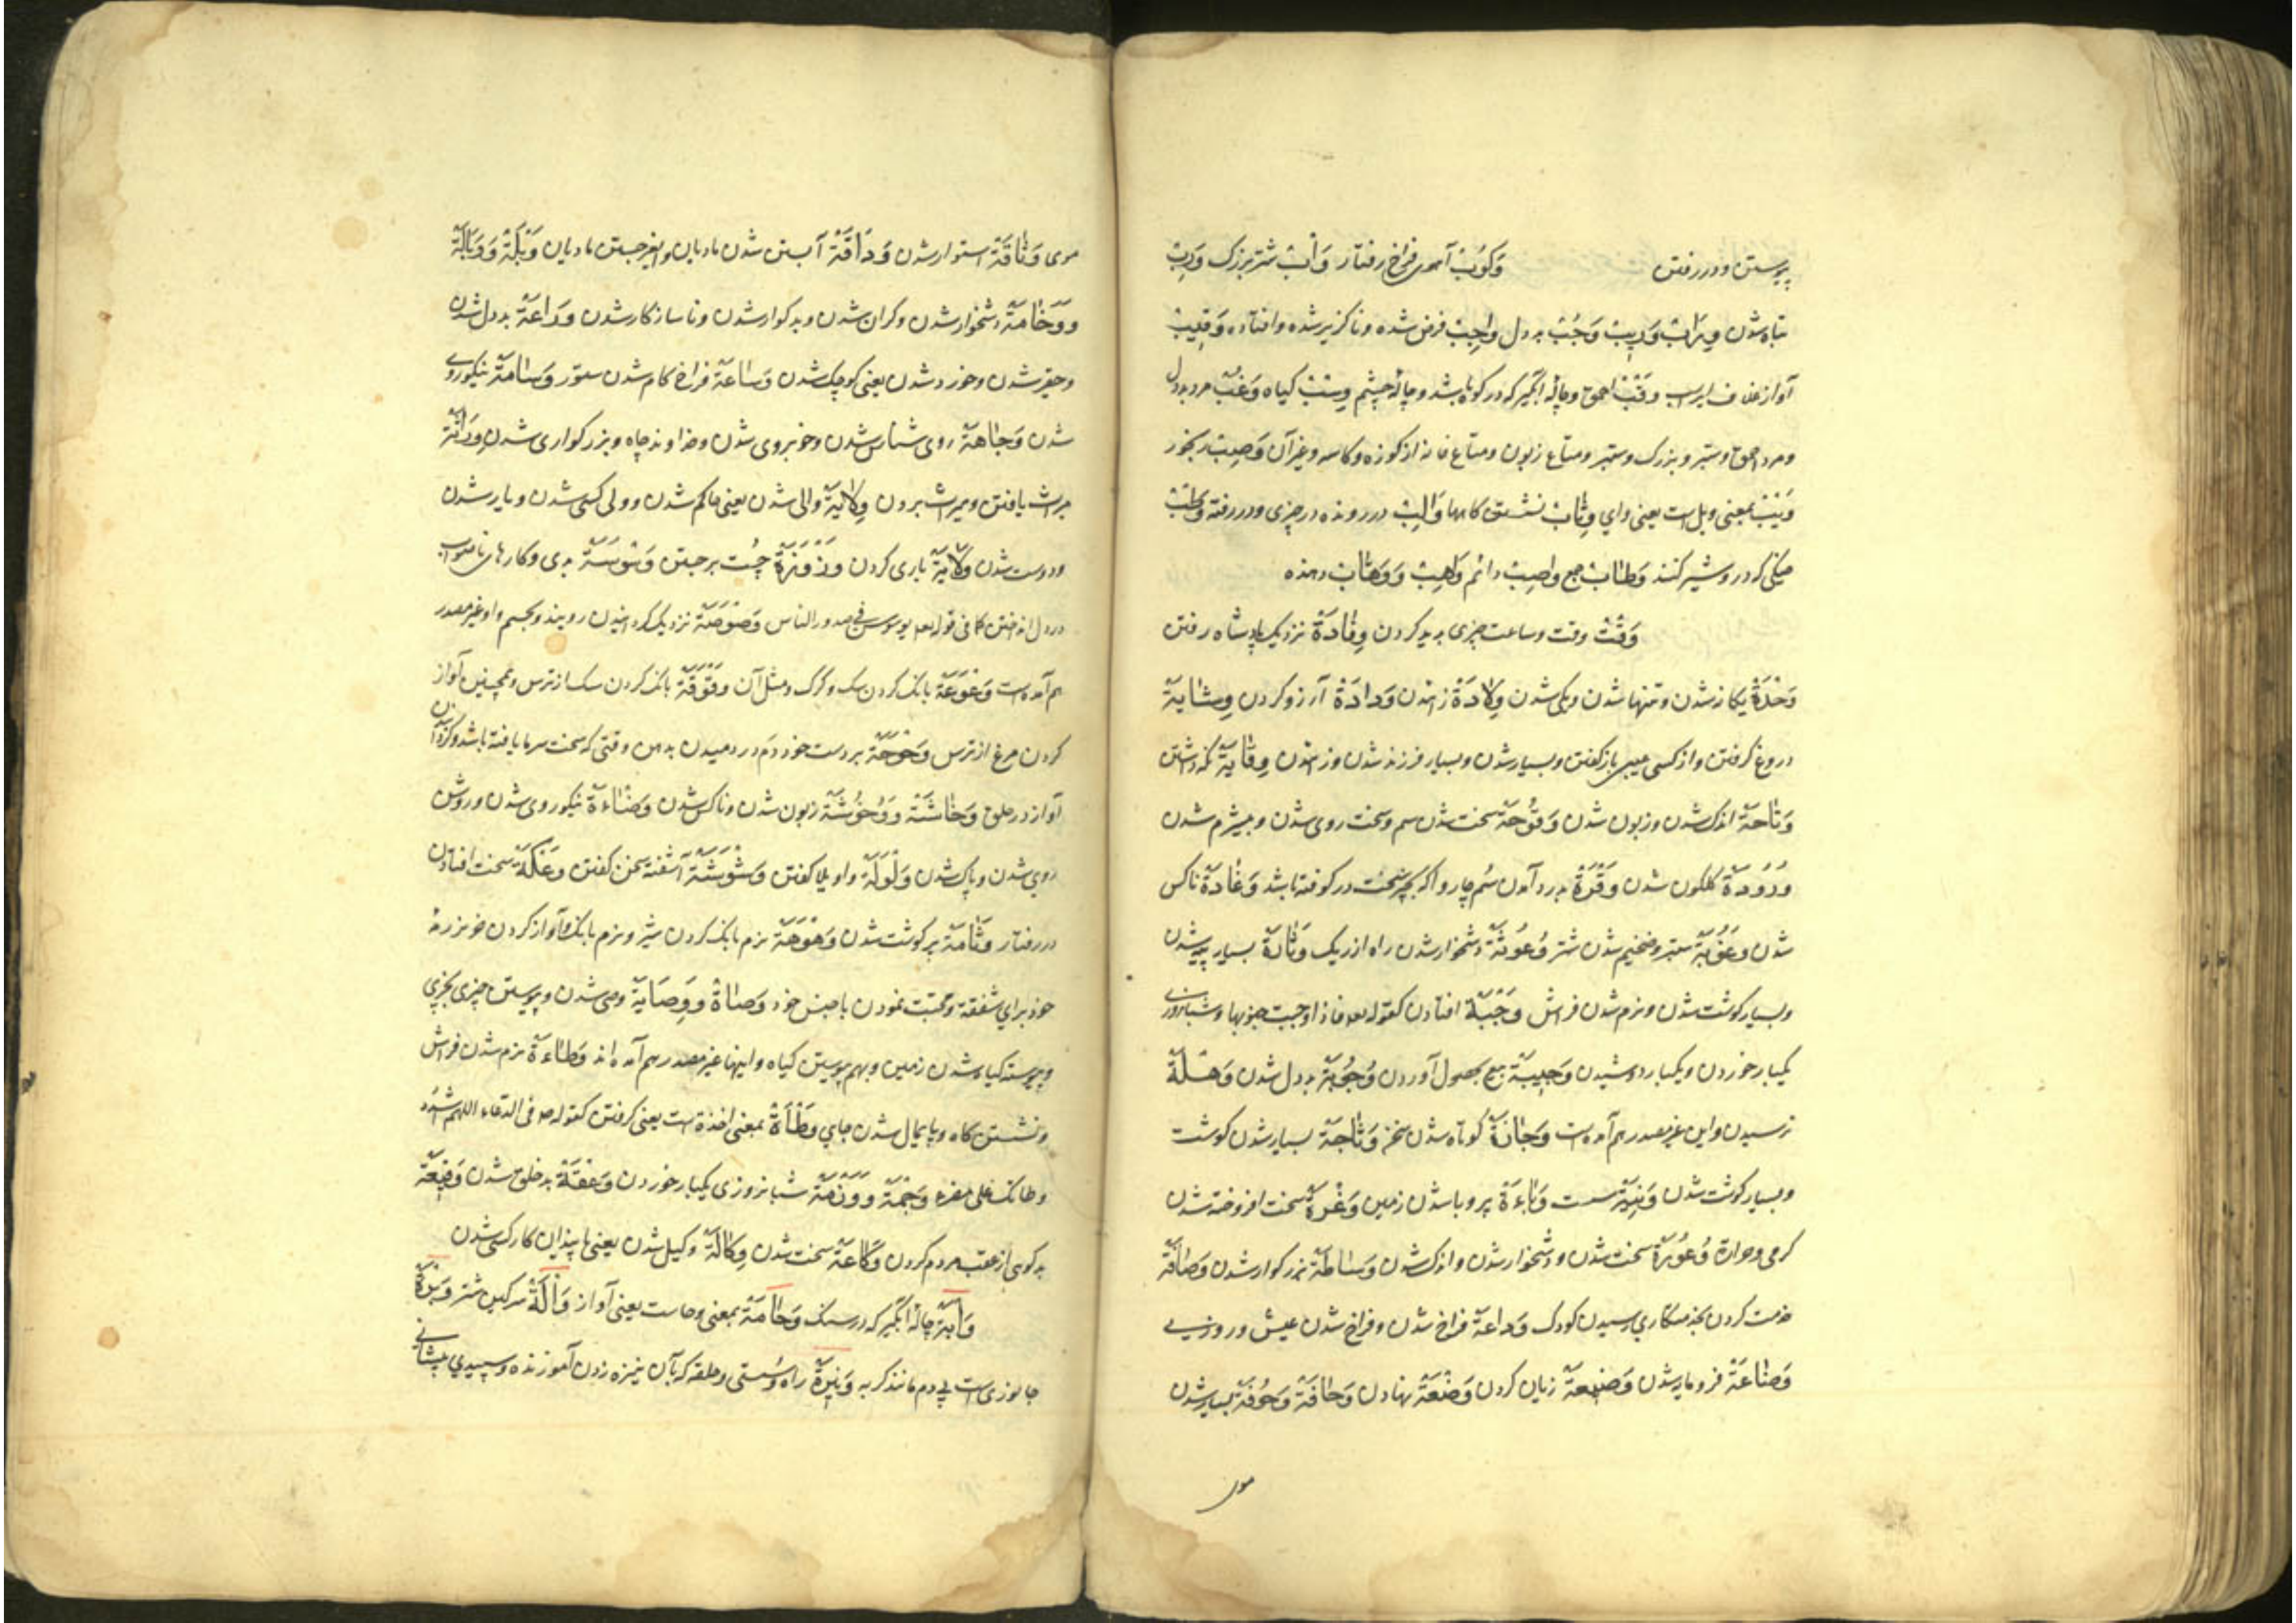 پوستن و در رفتن وَکُوبْ آهوی فراخ رفتار وَأبْ شتر بزرک وَرَبْ
تباه شدن وِرَابْ وَرِیبْ وَجْبْ بد دل وَاجِبْ فرض شده و ناکزیر شده و افتاده وَقِیبْ
آواز غلاف وَقْبْ احمق و چاله آبگیر که در کوه باشد و چاله چشم وِسْبْ کیاه وَغْبْ مرد بد دل
و مرد احمق و ستبر و بزرک و ستبر و متاع زبون و متاع خانه از کوزه و کاسه و غیر آن وَصِبْ رنجور
وَیْبْ بمعنی ویل است یعنی وای وِثَابْ نشستن کاهها وَالِبْ در رونده در چیزی و در رفته وَطْبْ
مشکی که در و شیر کنند وِطَابْ جمع وَاصِبْ دائم وَاهِبْ وَوَهَّابْ دهنده
وَقْتْ وقت و ساعت چیزی پدید کردن وِفَادَةْ نزدیک پادشاه رفتن
وَحْدَةْ یکانه شدن و تنها شدن و یکی شدن وِلَادَةْ زادن وَدَادَةْ آرزو کردن وِشَایَةْ
دروغ کرفتن و از کسی عیبی باز کفتن و بسیار شدن و بسیار فرزند شدن وزادن وِقَایَةْ نکه داشتن
وَتَاحَةْ اندک شدن و زبون شدن وَقُوحَةْ سخت شدن سم و سخت روی شدن و بیشرم شدن
وُرُودَةْ کلکون شدن وَقْرَةْ بدرد آمدن سُم چاروا که بچیز سخت در کوفته باشد وَغَادَةْ ناکس
شدن وَعُوبَةْ ستبر و ضخیم شدن شتر وُعُوثَةْ دشخوار شدن راه از ریک وَثَارَةْ بسیار پیه شدن
و بسیار کوشت شدن و نرم شدن فراش وَجْبَةْ افتادن کقوله تعه فاذا وجبت جنوبها و شبانروزی
یکبار خوردن و یکبار دوشیدن وَجِیبَةْ بیع بحصول آوردن وُجُوبَةْ بد دل شدن وَهَلَةْ
ترسیدن و این غیر مصدر هم آمده است وَجَازَةْ کوتاه شدن سخن وَثَاجَةْ بسیار شدن کوشت
و بسیار کوشت شدن وَنِیَةْ سست وَبَاءَةْ پر وبا شدن زمین وَغْرَةْ سخت افروخته شدن
کرمی و حرارة وُعُورَةْ سخت شدن و دشخوار شدن و اندک شدن وَسَاطَةْ بزرکوار شدن وَصَافَةْ
خدمت کردن بخدمتکاری رسیدن کودک وَدَاعَةْ فراخ شدن و فراخ شدن عیش و روزی
وَضَاعَةْ فرومایه شدن وَضِیعَةْ زیان کردن وَضْعَةْ نهادن وَحَافَةْ وَحُوفَةْ بسیار شدن
موی
موی وَثَاقَةْ استوار شدن وَدَاقَةْ آبستن شدن مادیان و بفرجستن مادیان وَبْلَةْ وَوَبَالَةْ
وَوَخَامَةْ دشخوار شدن و کران شدن و بدکوار شدن و ناسازکار شدن وَرَاعَةْ بد دل شدن
و حقیر شدن و خورد شدن یعنی کوچک شدن وَسَاعَةْ فراخ کام شدن ستور وَسَامَةْ نیکوروی
شدن وَجَاهَةْ روی شناس شدن و خوبروی شدن و خداوند جاه و بزرکواری شدن وِرَاثَةْ
میراث یافتن و میراث بردن وِلَایَةْ والی شدن یعنی حاکم شدن و ولی کسی شدن و یار شدن
و دوست شدن وَلَایَةْ یاری کردن وَزْوَزَةْ چُست برجستن وَسْوَسَةْ بدی و کارهای ناصواب
در دل انداختن کما فی قوله تعه یوسوس فی صدور الناس وَصْوَصَةْ نزدیک کردانیدن روبند و بجسم واو غیر مصدر
هم آمده است وَعْوَعَةْ بانک کردن سک و کرک و مثل آن وَقْوَقَةْ بانک کردن سک از ترس و همچنین آواز
کردن مرغ از ترس وَحْوَحَةْ بر دست خود دَم در دمیدن بدهن وقتی که سخت سرما یافته باشد و کردن
آواز در حلق وَخَاشَةْ وَوُخُوشَةْ زبون شدن و ناکس شدن وَضَاءَةْ نیکو روی شدن و روشن
روی شدن و پاک شدن وَلْوَلَةْ واویلا کفتن وَشْوَشَةْ آشفته سخن کفتن وَعْکَةْ سخت افتادن
در رفتار وَثَامَةْ پر کوشت شدن وَهْوَهَةْ نرم بانک کردن شیر و نرم بانک و آواز کردن خر نر رمه
خود برای شفقة و محبّت نمودن با جنس خود وَصَاةْ وَوَصَایَةْ وصی شدن و پیوستن چیزی بچیزی
و پیوسته کیاه شدن زمین و بهم پیوستن کیاه و اینها غیر مصدر هم آمده اند وَطَاءَةْ نرم شدن فراش
و نشستن کاه و پایمال شدن جای وَطْأَةْ بمعنی اخذة است یعنی کرفتن کقوله صم فی الدعاء اللهم اشدد
وطاتک علی مضر وَجْمَةْ وَوَزْمَةْ شبانروزی یکبار خوردن وَعْقَةْ بد خلق شدن وَقِیعَةْ
بدکویی از عقب مردم کردن وَکَاعَةْ سخت شدن وِکَالَةْ وکیل شدن یعنی پایندان کار کسی شدن
وَأبَةْ چاله آبگیر که در سنک وَحَامَةْ بمعنی وحاست یعنی آواز وَأْلَةْ سرکین شتر وَبْرَةْ
جانوری است بی دم مانند کربه وَتِیرَةْ راه و سُستی و حلقه که بآن نیزه زدن آموزنده و سپیدی پیشانی